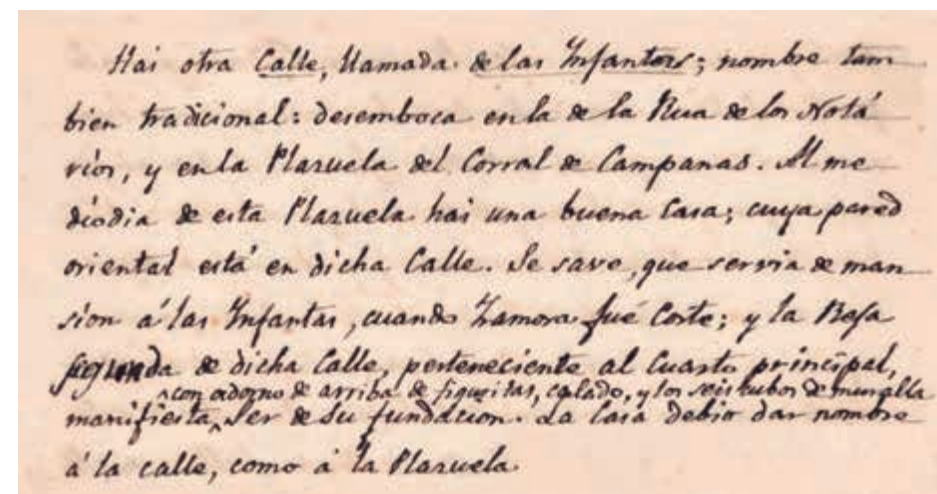 Hai otra Calle, llamada de las Infantas; nombre tam
bien tradicional: desemboca en la de la Rua de los Notá
rios, y en la Plazuela del Corral de Campanas. Al me
diodia de esta Plazuela hai una buena Casa; cuya pared
oriental está en dicha Calle. Se save, que servia de man
sion á las Infantas, cuando Zamora fué Corte; y la Reja
segunda de dicha Calle, perteneciente al Cuarto principal,
con adorno de arriba de figuritas, calado, y los seis cubos de muralla
manifiesta ser de su fundacion. La Casa debio dar nombre
á la calle, como á la Plazuela.